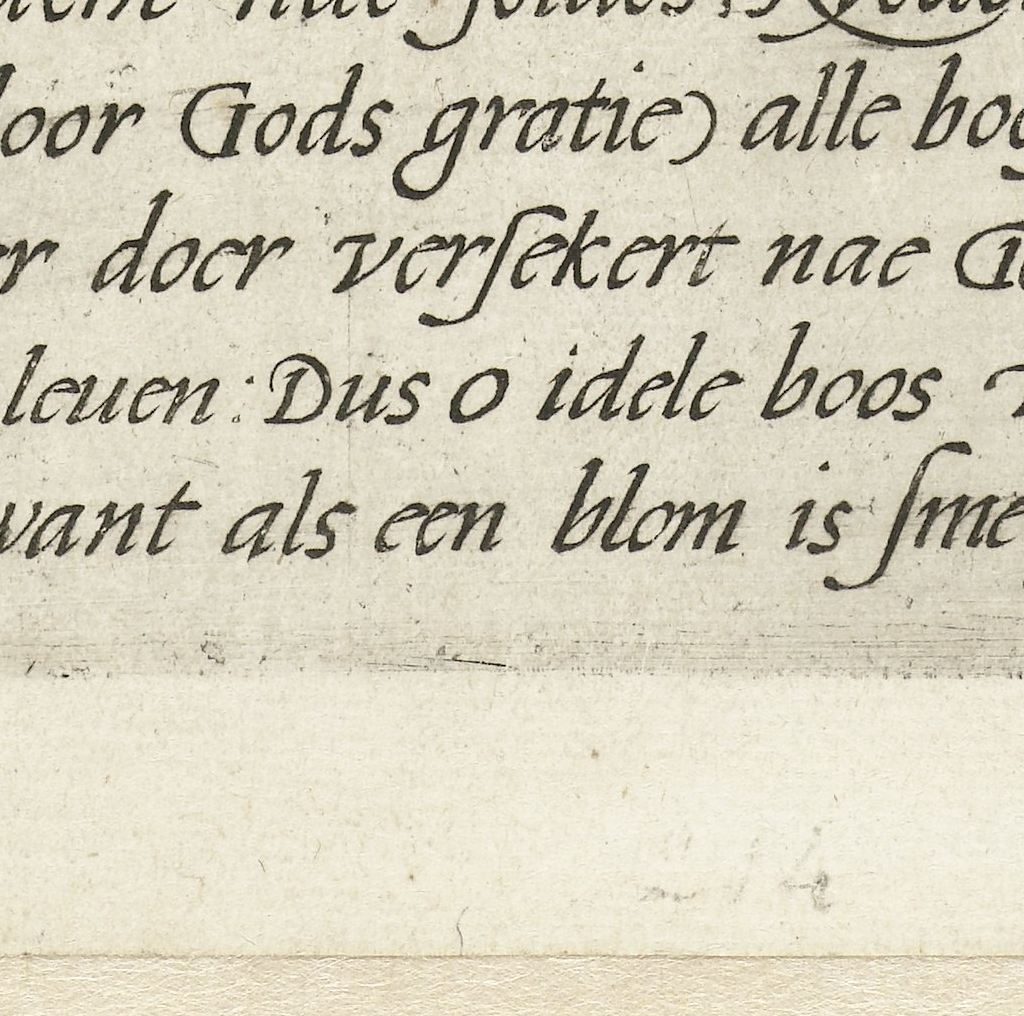 nae
oor Gods gratie) alle
er doer verſekert nae
leuen: Dus o idele boos
want als een blom is ſme